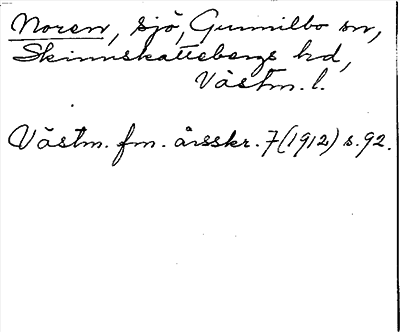 Noren, sjö, Gunnilbo sn,
Skinnskattebergs hd,
Västm. l.
Västm. fm. årsskr. 7(1912) s. 92.